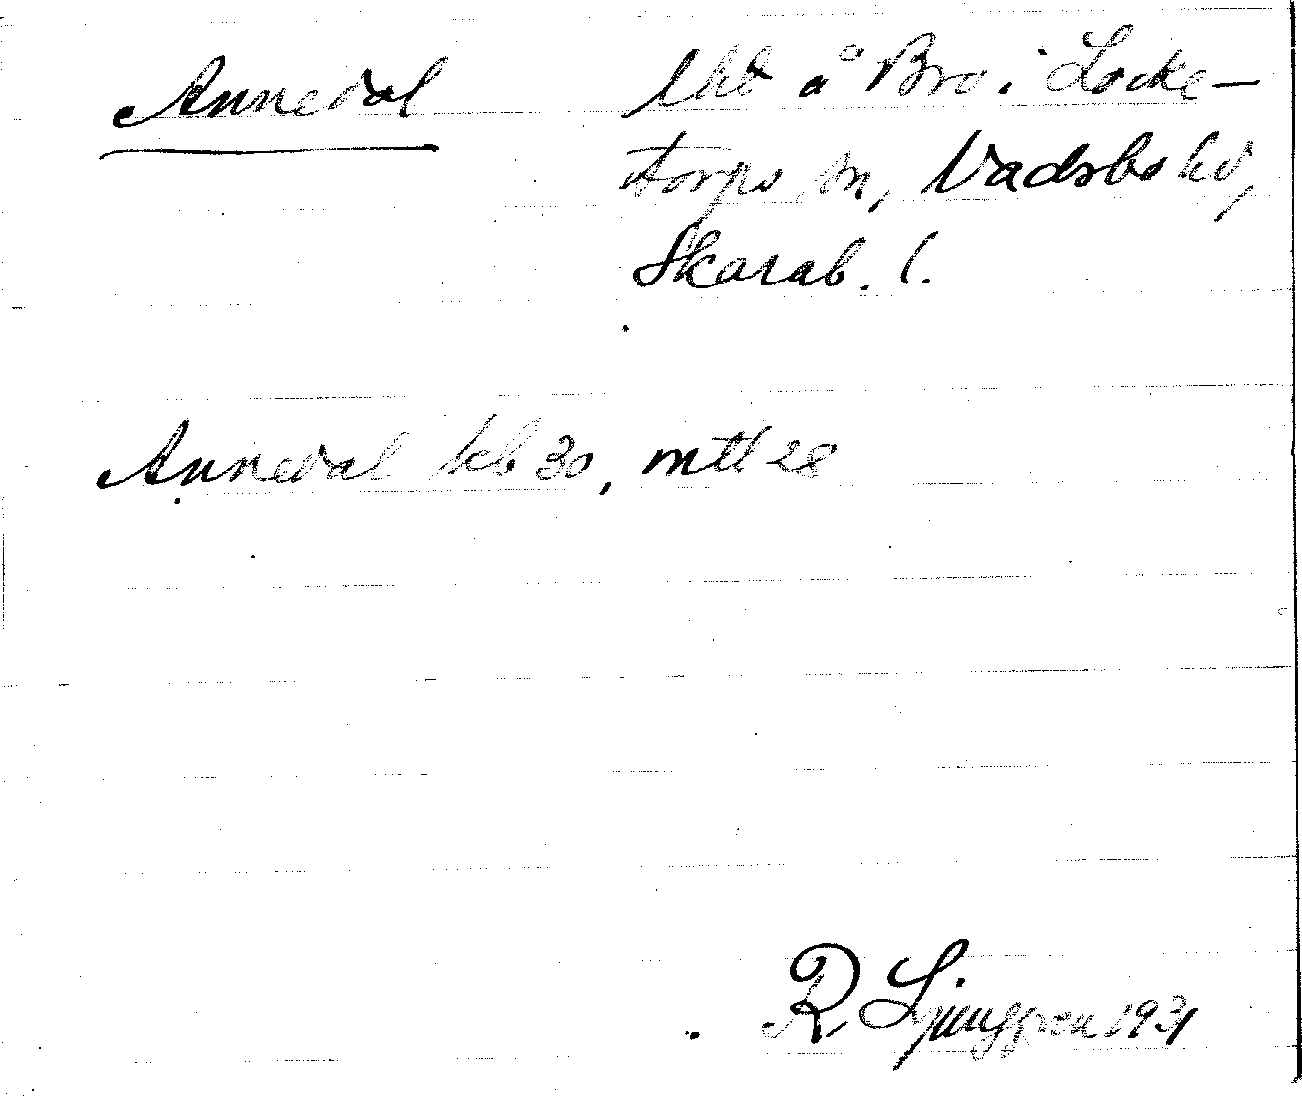 Annedal
lht å Bro i Locke-
torps sn, Vadsbo hd,
Skarab. l.
Annedal kb 30, mtl 28
R. Ljunggren 1931